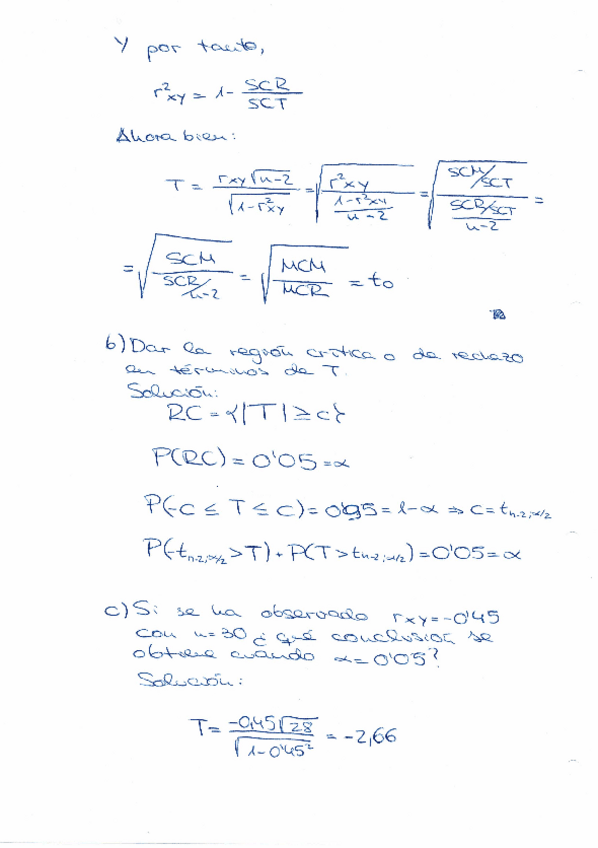 Y por tanto,
r²xy = 1 - SCR/SCT
Ahora bien:
T = rxy√(n-2)/√(1-r²xy) = √(r²xy/((1-r²xy)/(n-2))) = √((SCM/SCT)/((SCR/SCT)/(n-2))) =
= √(SCM/(SCR/n-2)) = √(MCM/MCR) = to
b) Dar la región crítica o de rechazo
en términos de T.
Solución:
RC = {|T| ≥ c}
P(RC) = 0'05 = α
P(-c ≤ T ≤ c) = 0'95 = 1-α ⇒ c = t n-2; α/2
P(-t n-2; α/2 > T) + P(T > t n-2; α/2) = 0'05 = α
c) Si se ha observado rxy = -0'45
con n = 30 ¿qué conclusión se
obtiene cuándo α = 0'05?
Solución:
T = -0,45√28/√(1-0'45²) = -2,66